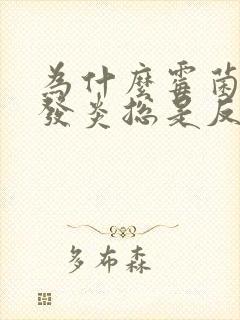 為什麼霉菌
發炎總是反
多布森